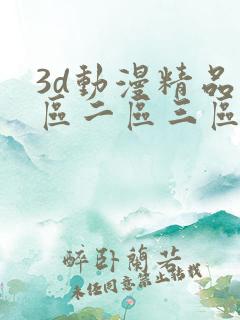 3d動漫精品
區二區三區
醉卧蘭芸
未任同意禁止転載